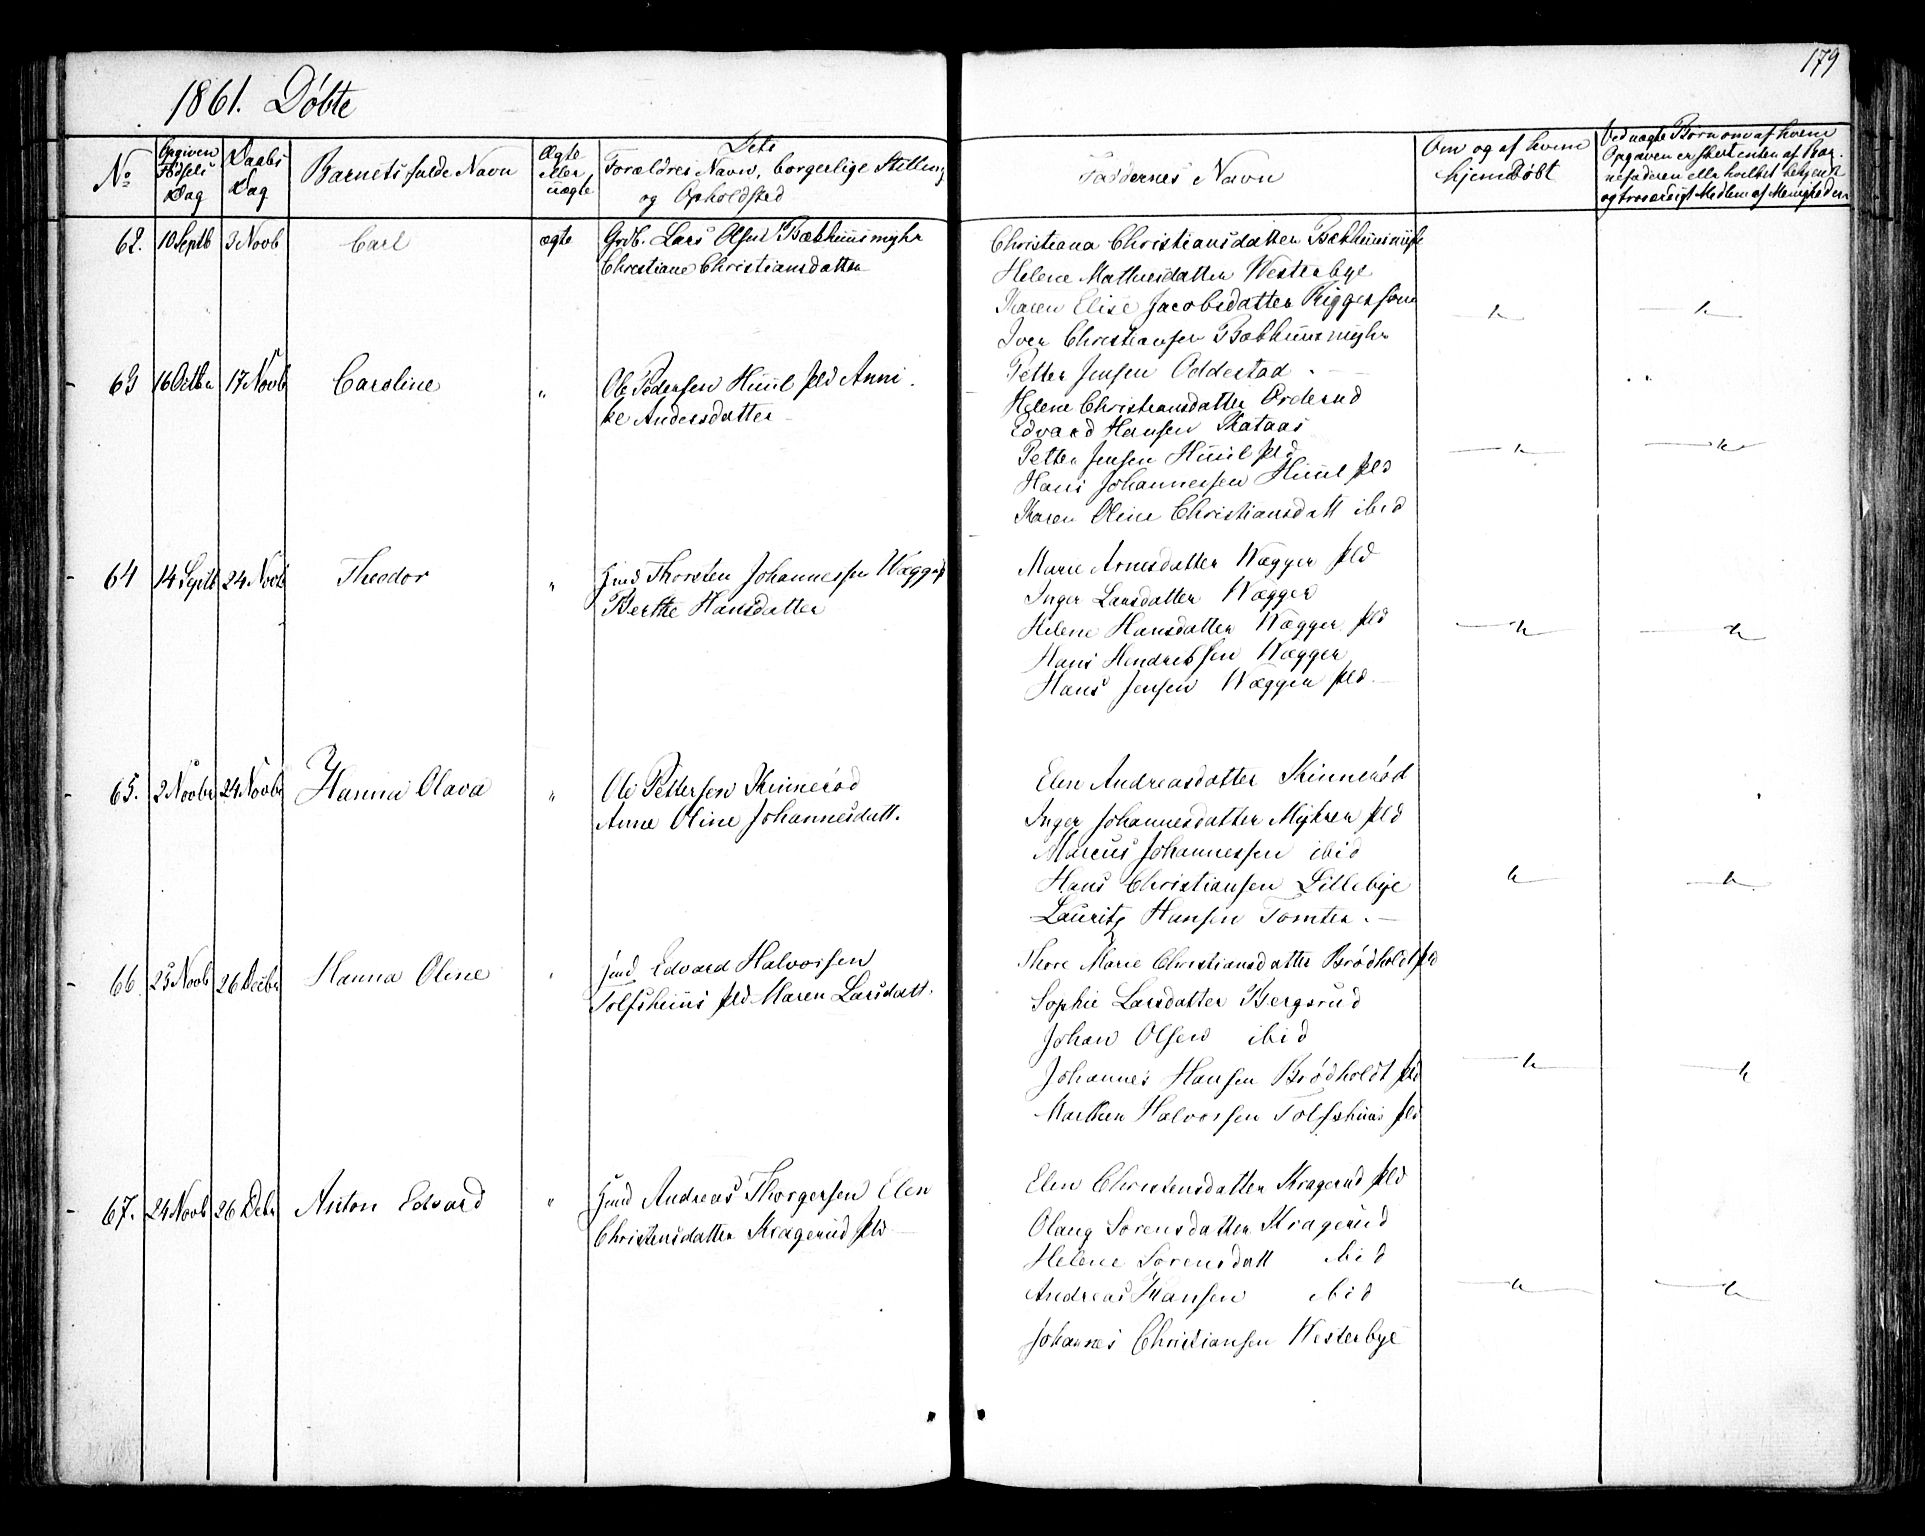 179
1861. Døbte
No
Opgiven Fødsels Dag
Daabs Dag
Barnets fulde Navn
Ægte eller uægte
Dets
Forældres Navn, borgerlige Stilling
og Opholdsted
Faddernes Navn
Om og af hvem
hjemDøbt
Ved uægte Børn om af hvem
Opgaven er skeet enten af Bar-
nefaderen eller hvilket bekjendt
og troværdigt Medlem af Menigheden
62. 10 Septb 3 Novb Carl ægte Grdb. Lars Olsen Bækhuusmyhr
Christiane Christiansdatter
Christiana Christiansdatter Bækhuusmyhr
Helene Mathisdatter Westerbye
Karen Elise Jacobsdatter
Iver Christiansen Bækhuusmyhr
63 16 Octbr 17 Novb Caroline " Ole Pedersen Huul pld Anni-
ke Andersdatter
Petter Jensen Oddestad
Helene Christiansdatter Orderud
Edvard Hansen Kataas
Petter Jensen Huul pld
Hans Johannessen Huul pld
Karen Oline Christiansdatt ibid
64 14 Septb 24 Novb Theodor " Huusd Thorsten Johannessen Wægger
Berthe Hansdatter
Marie Arnesdatter Wægger pld
Inger Larsdatter Wægger
Helene Hansdatter Wægger pld
Hans Hendrechsen Wægger
Hans Jensen Wægger pld
65. 2 Novbr 24 Novbr Hanna Olava " Ole Pettersen Kinnerød
Anne Oline Johannesdatt.
Elen Andreasdatter Kinnerød
Inger Johannesdatter Myhrer pld
Marcus Johannessen ibid
Hans Christiansen Lillebye
Lauritz Hansen Tomter
66 25 Novb 26 Decbr Hanna Oline " Huusd Edvard Halvorsen
Tolfshuus pld Maren Larsdatt.
Thore Marie Christiansdatter Brødholdt pld
Sophie Larsdatter Bergsrud
Johan Olsen ibid
Johannes Hansen Brødholdt pld
Marthin Halvorsen Tolfshuus pld
67. 24 Novb 26 Debr Anton Edvard " Huusd Andreas Thorgersen Elen
Christensdatter Kragerud pld
Elen Christensdatter Kragerud pld
Olaug Sorensdatter Kragerud
Helene Sorensdatt ibid
Andreas Hansen ibid
Johannes Christiansen Westerbye